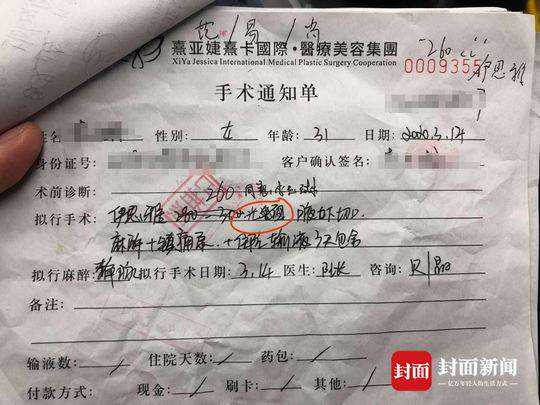 熹亚婕熹卡國際·醫療美容集團
XiYa Jessica International Medical Plastic Surgery Cooperation
260cc
伊思雅
0009355
手术通知单
姓名 性别: 女 年龄: 31 日期: 2020.3.14
身份证号: 客户确认签名:
术前诊断: 260
拟行手术: 伊思雅 腋下切口
麻醉+镇痛泵 +住院输液3天包含
拟行麻醉: 静吸 拟行手术日期: 3.14 医生: 咨询:
备注:
输液数: / 住院天数: / 药包: /
付款方式: 现金: / 刷卡: / 其他: /
封面 封面新闻
亿万年轻人的生活方式